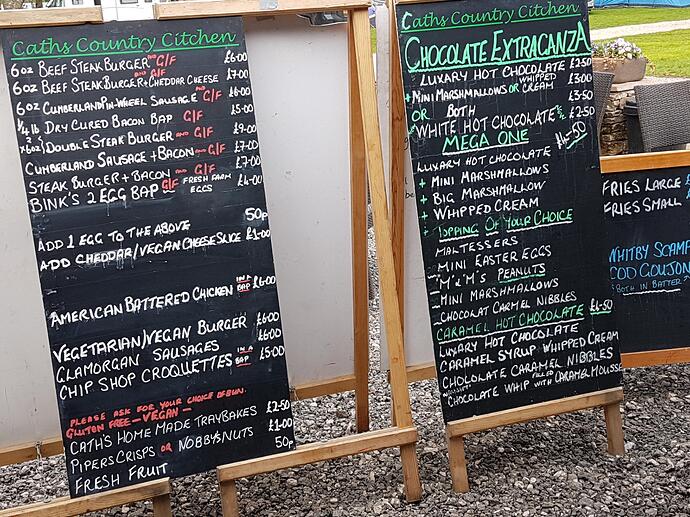 Caths Country Citchen
6oz BEEF STEAK BURGER AND G/F £6.00
6oz BEEF STEAK BURGER AND G/F + CHEDDAR CHEESE £7.00
6oz CUMBERLAND PIN-WHEEL SAUSAGE AND G/F £6.00
1/4 lb DRY CURED BACON BAP G/F £5.00
2x6oz DOUBLE STEAK BURGER AND G/F £9.00
CUMBERLAND SAUSAGE + BACON AND G/F £7.00
STEAK BURGER + BACON AND G/F £7.00
BINK'S 2 EGG BAP G/F FRESH FARM EGGS £4.00
ADD 1 EGG TO THE ABOVE 50p
ADD CHEDDAR/VEGAN CHEESE SLICE £1.00
AMERICAN BATTERED CHICKEN IN A BAP £6.00
VEGETARIAN/VEGAN BURGER £6.00
GLAMORGAN SAUSAGES £6.00
CHIP SHOP CROQUETTES IN A BAP £5.00
PLEASE ASK FOR YOUR CHOICE BEBUN.
GLUTEN FREE - VEGAN -
CATH'S HOME MADE TRAYBAKES £2.50
PIPERS CRISPS OR NOBBYS NUTS £1.00
FRESH FRUIT 50p
Caths Country Citchen
CHOCOLATE EXTRAGANZA
LUXARY HOT CHOCOLATE £2.50
+ MINI MARSHMALLOWS OR WHIPPED CREAM £3.00
OR BOTH £3.50
WHITE HOT CHOCOLATE £2.50
MEGA ONE £4.50
LUXARY HOT CHOCOLATE
+ MINI MARSHMALLOWS
+ BIG MARSHMALLOW
+ WHIPPED CREAM
TOPPING OF YOUR CHOICE
MALTESSERS
MINI EASTER EGGS
"M & M'S PEANUTS
MINI MARSHMALLOWS
CHOCOLAT CARMEL NIBBLES
CARAMEL HOT CHOCOLATE £4.50
LUXARY HOT CHOCOLATE
CARAMEL SYRUP WHIPPED CREAM
CHOLOLATE CARAMEL NIBBLES
CHOCOLATE WHIP FILLED WITH CARAMEL MOUSSE
FRIES LARGE £
FRIES SMALL
WHITBY SCAMP
COD GOUJON
(BOTH IN BATTER